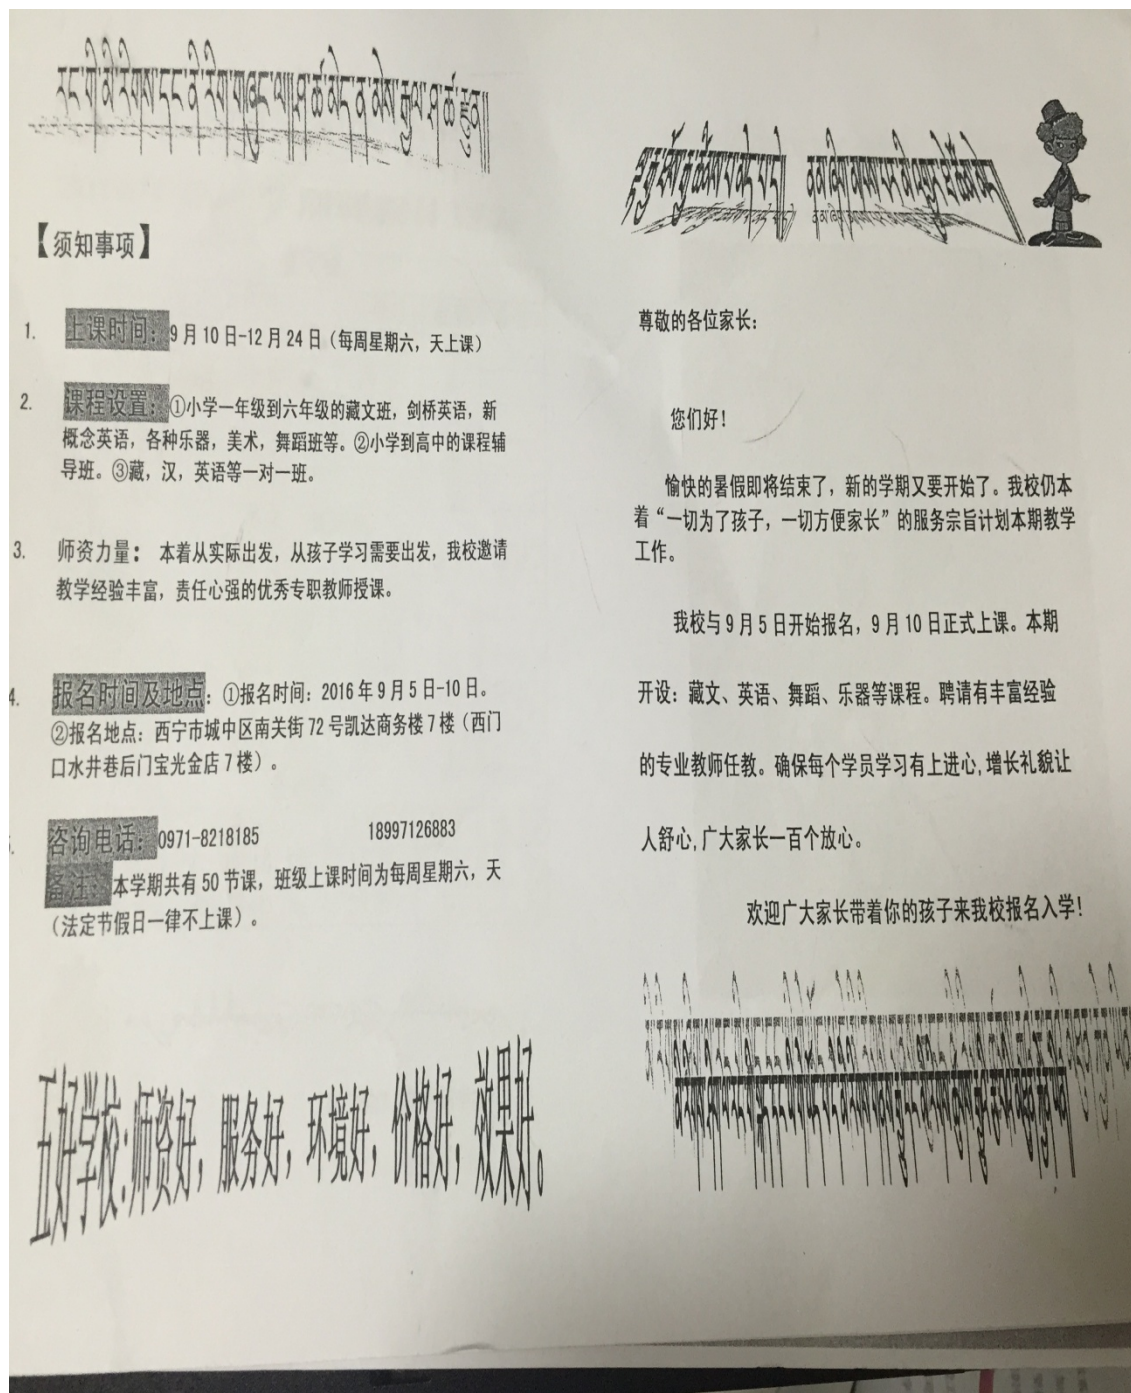 【须知事项】
1. 上课时间：9月10日-12月24日（每周星期六，天上课）
2. 课程设置：①小学一年级到六年级的藏文班，剑桥英语，新
概念英语，各种乐器，美术，舞蹈班等。②小学到高中的课程辅
导班。③藏，汉，英语等一对一班。
3. 师资力量：本着从实际出发，从孩子学习需要出发，我校邀请
教学经验丰富，责任心强的优秀专职教师授课。
4. 报名时间及地点：①报名时间：2016年9月5日-10日。
②报名地点：西宁市城中区南关街72号凯达商务楼7楼（西门
口水井巷后门宝光金店7楼）。
咨询电话：0971-8218185 18997126883
备注：本学期共有50节课，班级上课时间为每周星期六，天
（法定节假日一律不上课）。
五好学校:师资好，服务好，环境好，价格好，效果好。
尊敬的各位家长：
您们好！
愉快的暑假即将结束了，新的学期又要开始了。我校仍本
着“一切为了孩子，一切方便家长”的服务宗旨计划本期教学
工作。
我校与9月5日开始报名，9月10日正式上课。本期
开设：藏文、英语、舞蹈、乐器等课程。聘请有丰富经验
的专业教师任教。确保每个学员学习有上进心,增长礼貌让
人舒心,广大家长一百个放心。
欢迎广大家长带着你的孩子来我校报名入学！